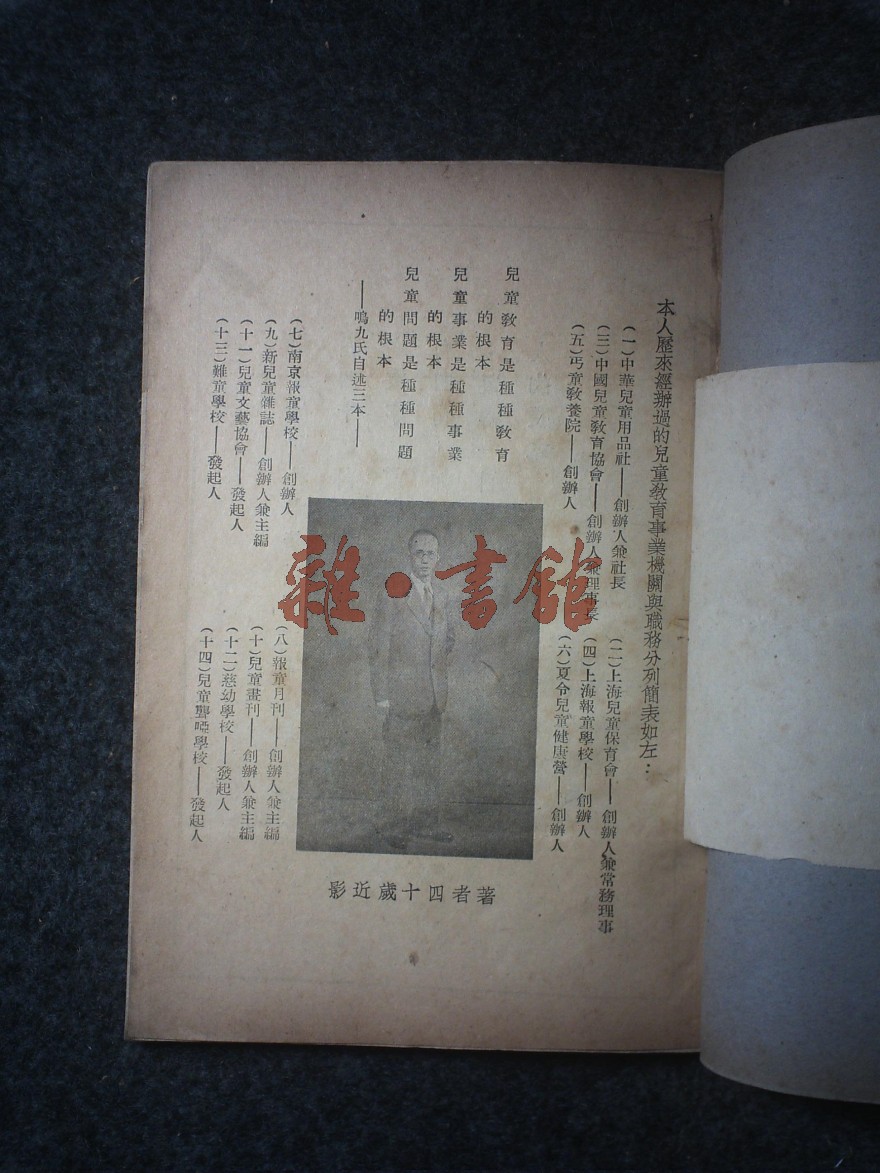 本人歷來經辦過的兒童敎育事業機關與職務分列簡表如左：
（一）中華兒童用品社——創辦人兼社長
（二）上海兒童保育會——創辦人兼常務理事
（三）中國兒童敎育協會——創辦人兼理事長
（四）上海報童學校——創辦人
（五）丐童敎養院——創辦人
（六）夏令兒童健康營——創辦人
兒童敎育是種種敎育
的根本
兒童事業是種種事業
的根本
兒童問題是種種問題
的根本
——鳴九氏自述三本——
（七）南京報童學校——創辦人
（八）報童月刊——創辦人兼主編
（九）新兒童雜誌——創辦人兼主編
（十）兒童畫刊——創辦人兼主編
（十一）兒童文藝協會——發起人
（十二）慈幼學校——發起人
（十三）難童學校——發起人
（十四）兒童聾啞學校——發起人
著者四十歲近影
雜·書館